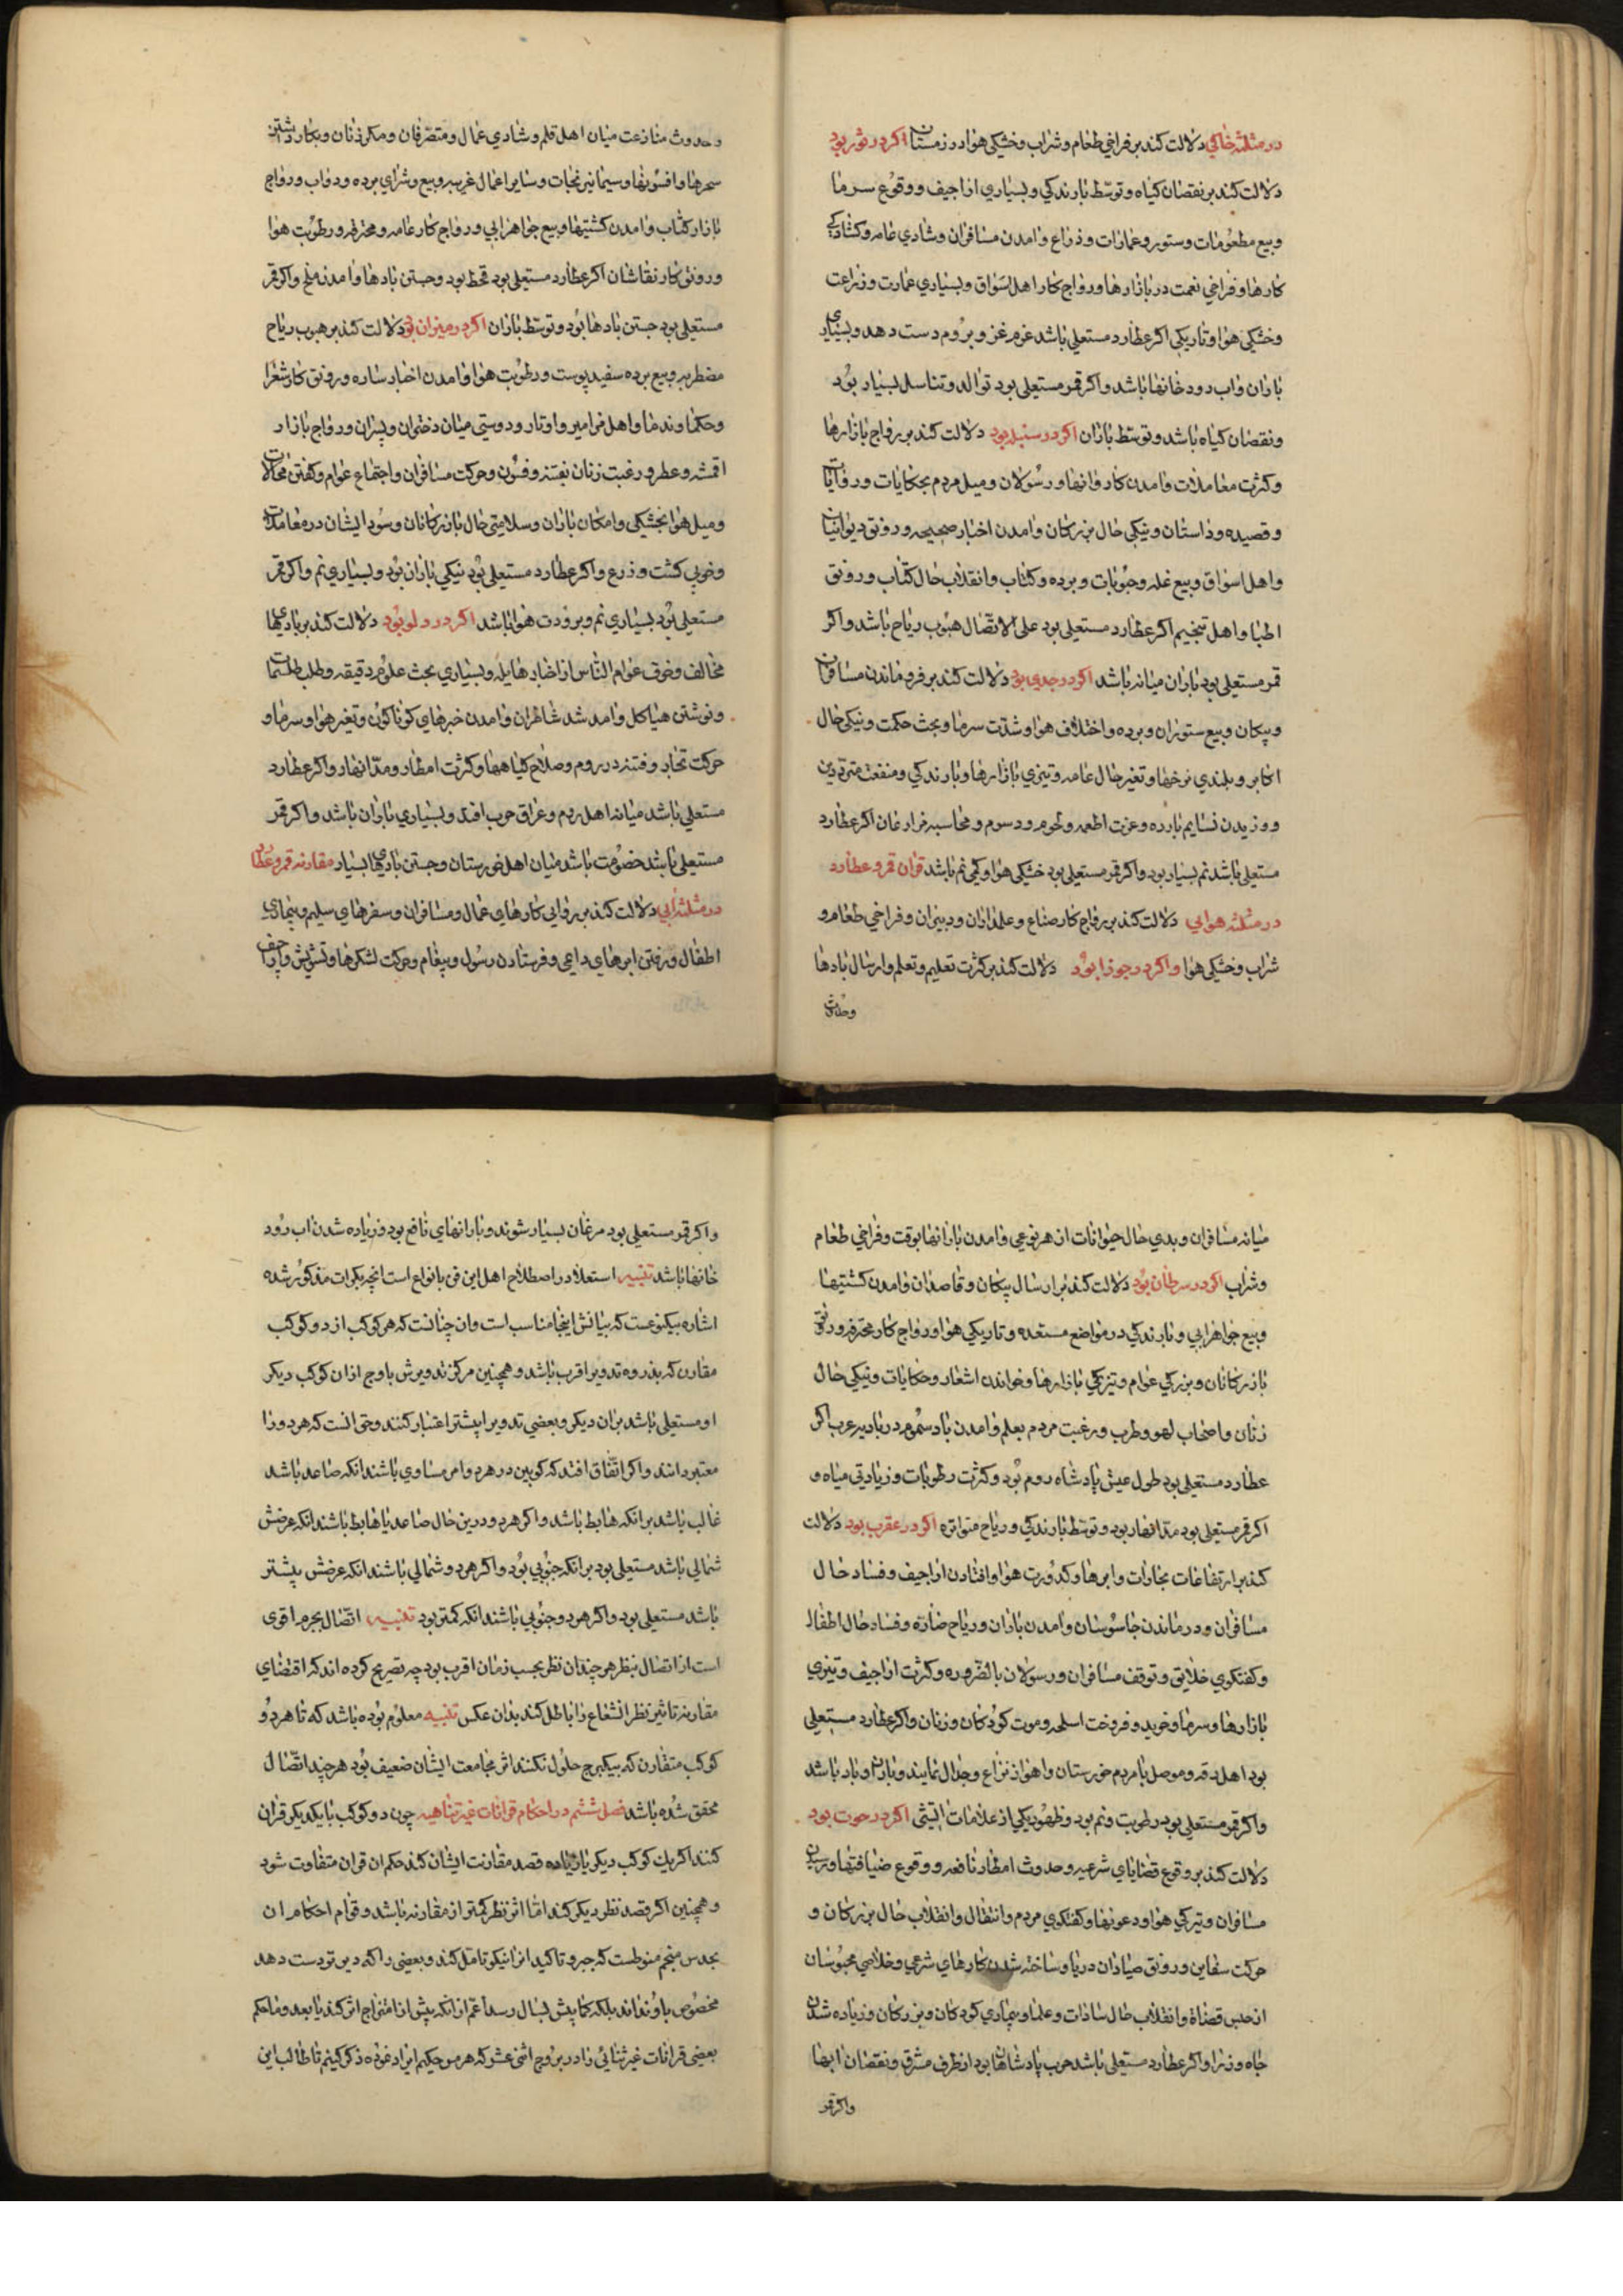 در مثلثه خاکی دلالت کند بر فراخی طعام و شراب و خشکی هوا در زمستان اکر در ثور بود
دلالت کند بر نقصان کیاه و توسّط بارندکی و بسیاری اراجیف و وقوع سرما
وبیع مطعومات و ستور و عمارات و ذراع وامدن مسافران و شادی عامه و کشادکی
کارها و فراخی نعمت در بازارها و رواج کار اهل اسواق و بسیاری عمارت و زراعت
و خشکی هوا و تاریکی اکر عطارد مستعلی باشد عزم غزو بروم دست دهد و بسیاری
باران واب رودخانها باشد و اکر قمر مستعلی بود توالد و تناسل بسیار بود
و نقصان کیاه باشد و توسّط باران اکر در سنبله بود دلالت کند بر رواج بازارها
و کثرت معاملات وامدن کاروانها و رسولان و میل مردم بحکایات و روایات
و قصیده و داستان و نیکی حال بزرکان وامدن اخبار صحیحه و رونق دیوانیان
و اهل اسواق و بیع غله و حبوبات و برده و کتاب و انقلاب حال کتّاب و رونق
اطبا و اهل تنجیم اکر عطارد مستعلی بود علی الاتّصال هبوب ریاح باشد و اکر
قمر مستعلی بود باران میانه باشد اکر در جدی بود دلالت کند بر فروماندن مسافران
و پیکان و بیع ستوران و برده و اختلاف هوا و شدّت سرما و بحث حکمت و نیکی حال
اکابر و بلندی نرخها و تغیر حال عامه و تیزی بازارها و بارندکی و منفعت متردّدین
و وزیدن نسایم بارده و عزت اطعمه و لحوم و رسوم و محاسبه مزارعان اکر عطارد
مستعلی باشد نم بسیار بود و اکر قمر مستعلی بود خشکی هوا و کمی نم باشد قران قمر و عطارد
در مثلثه هوایی دلالت کند بر رواج کار صناع و علمداران و دبیران و فراخی طعام و
شراب و خشکی هوا و اکر در جوزا بود دلالت کند بر کثرت تعلیم و تعلم و ارسال بادها
وحدوث
وحدوث منازعت میان اهل قلم و شادی عمّال و متصرّفان و مکر زنان و بکار داشتن
سحرها و افسونها و سیما نیرنجات و سایر اعمال غریبه و بیع و شرای برده و دواب و رواج
بازار کتّاب وامدن کشتیها و بیع جواهر ابی و رواج کار عامه و محترفه و رطوبت هوا
و رونق کار نقاشان اکر عطارد مستعلی بود قحط بود و جستن بادها وامدن ملخ و اکر قمر
مستعلی بود جستن بادها بود و توسّط باران اکر در میزان بود دلالت کند بر هبوب ریاح
مضطربه و بیع برده سفید پوست و رطوبت هوا وامدن اخبار ساره و رونق کار شعرا
و حکما و ندما و اهل مزامیر و اوتار و دوستی میان دختران و پسران و رواج بازار
اقمشه و عطر و رغبت زنان بفتنه و فسون و حرکت مسافران و اجتماع عوام و کفتن محالات
و میل هوا بخشکی و امکان باران و سلامتی حال بازرکانان و سود ایشان در معاملات
و خوبی کشت و زرع و اکر عطارد مستعلی بود نیکی باران بود و بسیاری نم و اکر قمر
مستعلی بود بسیاری نم و برودت هوا باشد اکر در دلو بود دلالت کند بر بادهای
مخالف و خوف عوام النّاس از اخبار هایله و بسیاری بحث علوم دقیقه و طلب طلسمات
و نوشتن هیاکل وامد شد شاطران وامدن خبرهای کوناکون و تغیر هوا و سرما و
حرکت تجار و فتنه در روم و صلاح کیاهها و کثرت امطار و مدّ انهار و اکر عطارد
مستعلی باشد میانه اهل روم و عراق حرب افتد و بسیاری باران باشد و اکر قمر
مستعلی باشد خصومت باشد میان اهل خوزستان و جستن بادهای بسیار مقارنه قمر و عطارد
در مثلثه ابی دلالت کند بر روایی کارهای عمّال و مسافران و سفرهای سلیم و بیماری
اطفال و رفتن ابرهای داعی و فرستادن رسول و پیغام و حرکت لشکرها و تشویش و اراجیف
میانه مسافران و بدی حال حیوانات از هر نوعی وامدن بارانها بوقت و فراخی طعام
و شراب اکر در سرطان بود دلالت کند بر ارسال پیکان و قاصدان وامدن کشتیها
وبیع جواهر ابی و بارندکی در مواضع مستعده و تاریکی هوا و رواج کار محترفه و رونق
بازرکانان و بزرکی عوام و تیزکی بازارها و خواندن اشعار و حکایات و نیکی حال
زنان و اصحاب لهو و طرب و رغبت مردم بعلم وامدن باد سموم در بادیه عرب اکر
عطارد مستعلی بود طول عیش پادشاه روم بود و کثرت رطوبات و زیادتی میاه و
اکر قمر مستعلی بود مدّ انهار بود و توسّط بارندکی و ریاح متواتره اکر در عقرب بود دلالت
کند بر ارتفاعات بخارات و ابرها و کدورت هوا و افتادن اراجیف و فساد حال
مسافران و درماندن جاسوسان وامدن باران و ریاح ضارّه و فساد حال اطفال
و کفتکوی خلایق و توقف مسافران و رسولان بالضّروره و کثرت اراجیف و تیزی
بازارها و سرما و خرید و فروخت اسلحه و موت کودکان و زنان و اکر عطارد مستعلی
بود اهل رقه و موصل با مردم خوزستان و اهواز نزاع و جدال نمایند و باران و باد باشد
و اکر قمر مستعلی بود رطوبت و نم بود و ظهور یکی از علامات اکر در حوت بود
دلالت کند بر وقوع قضایای شرعیه و حدوث امطار نافعه و وقوع ضیافتها و رسیدن
مسافران و تیرکی هوا و دعوتها و کفتکوی مردم و انتقال و انقلاب حال بزرکان و
حرکت سفاین و رونق صیادان دریا و ساخته شدن کارهای شرعی و خلاصی محبوسان
از حبس قضاة و انقلاب حال سادات و علما و بیماری کودکان و بزرکان و زیاده شدن
جاه وزرا و اکر عطارد مستعلی باشد حرب پادشاهان بود از طرف مشرق و نقصان ابها
واکر قمر
واکر قمر مستعلی بود مرغان بسیار شوند و بارانهای نافع بود و زیاده شدن اب رود
خانها باشد تنبیه استعلا در اصطلاح اهل این فن بانواع است انچه بکرات مذکور شده
اشاره بیکنوعست که بیانش اینجا مناسب است وان چنانست که هر کوکب از دو کوکب
مقارن که بذروه تدویر اقرب باشد و همچنین مرکز تدویرش باوج ازان کوکب دیکر
او مستعلی باشد بران دیکر و بعضی تدویر را بیشتر اعتبار کنند و حق انست که هر دو را
معتبر دانند و اکر اتّفاق افتد که کوکبین در هر دو امر مساوی باشند انکه صاعد باشد
غالب باشد بر انکه هابط باشد و اکر هر دو درین حال صاعد یا هابط باشند انکه عرضش
شمالی باشد مستعلی بود بر انکه جنوبی بود و اکر هر دو شمالی باشند انکه عرضش بیشتر
باشد مستعلی بود و اکر هر دو جنوبی باشند انکه کمتر بود تنبیه اتّصال بجرم اقوی
است از اتصال بنظر هر چندان نظر بحسب زمان اقرب بود چه تصریح کرده اند که اقتضای
مقارنه تاثیر نظر انشعاع را باطل کند بدان عکس تنبیه معلوم بوده باشد که تا هر دو
کوکب متقارن که بیکبرج حلول نکنند اثر مجامعت ایشان ضعیف بود هر چند اتّصال
محقق شده باشد فصل ششم در احکام قرانات غیر ثنائیه چون دو کوکب با یکدیکر قران
کنند اکر یک کوکب دیکر یا زیاده قصد مقارنت ایشان کند حکم ان قران متفاوت شود
و همچنین اکر قصد نظر دیکر کند امّا اثر نظر کمتر از مقارنه باشد و قوام احکام ان
بحدس منجم منوطست که جبر و تاکید انرا نیکو تامل کند و بعضی را که دست دهد
مخصوص باو نداند بلکه کما بیش بسال رسد اعم از انکه پیش از امتزاج اثر کند یا بعد و ما حکم
بعضی قرانات غیر ثنائی را در بروج اثنی عشر که هرمس حکیم ایراد نموده ذکر کنیم تا طالب این